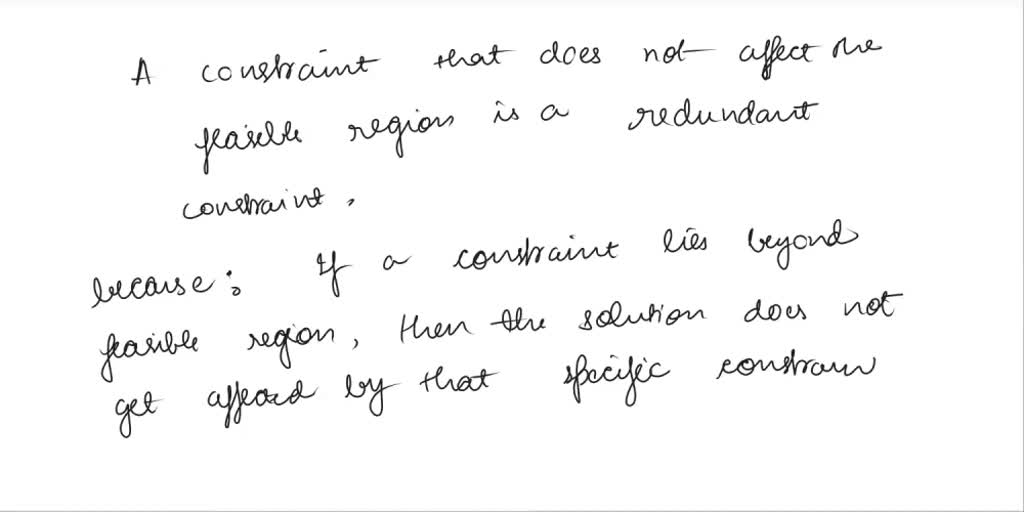 A constraint that does not affect the
feasible region is a redundant
constraint.
because: If a constraint lies beyond
feasible region, then the solution does not
get by that specific constrain